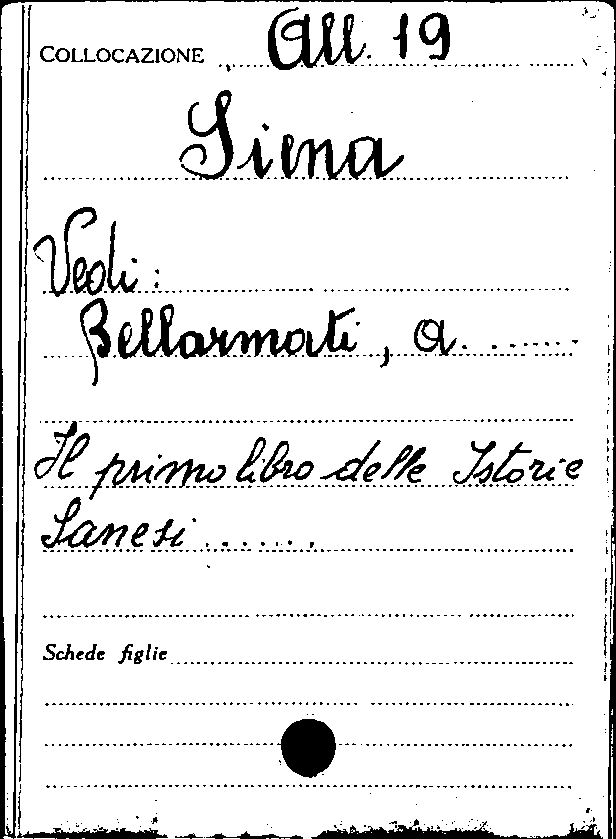 COLLOCAZIONE All. 19
Siena
Vedi:
Bellarmati, A. .......
Il primo libro delle Istorie
Sanesi .......
Schede figlie